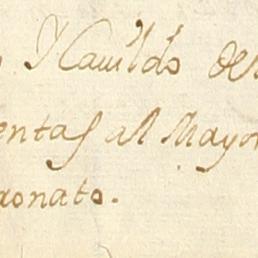 Y Cauildo de
entas al Mayor
aonato.